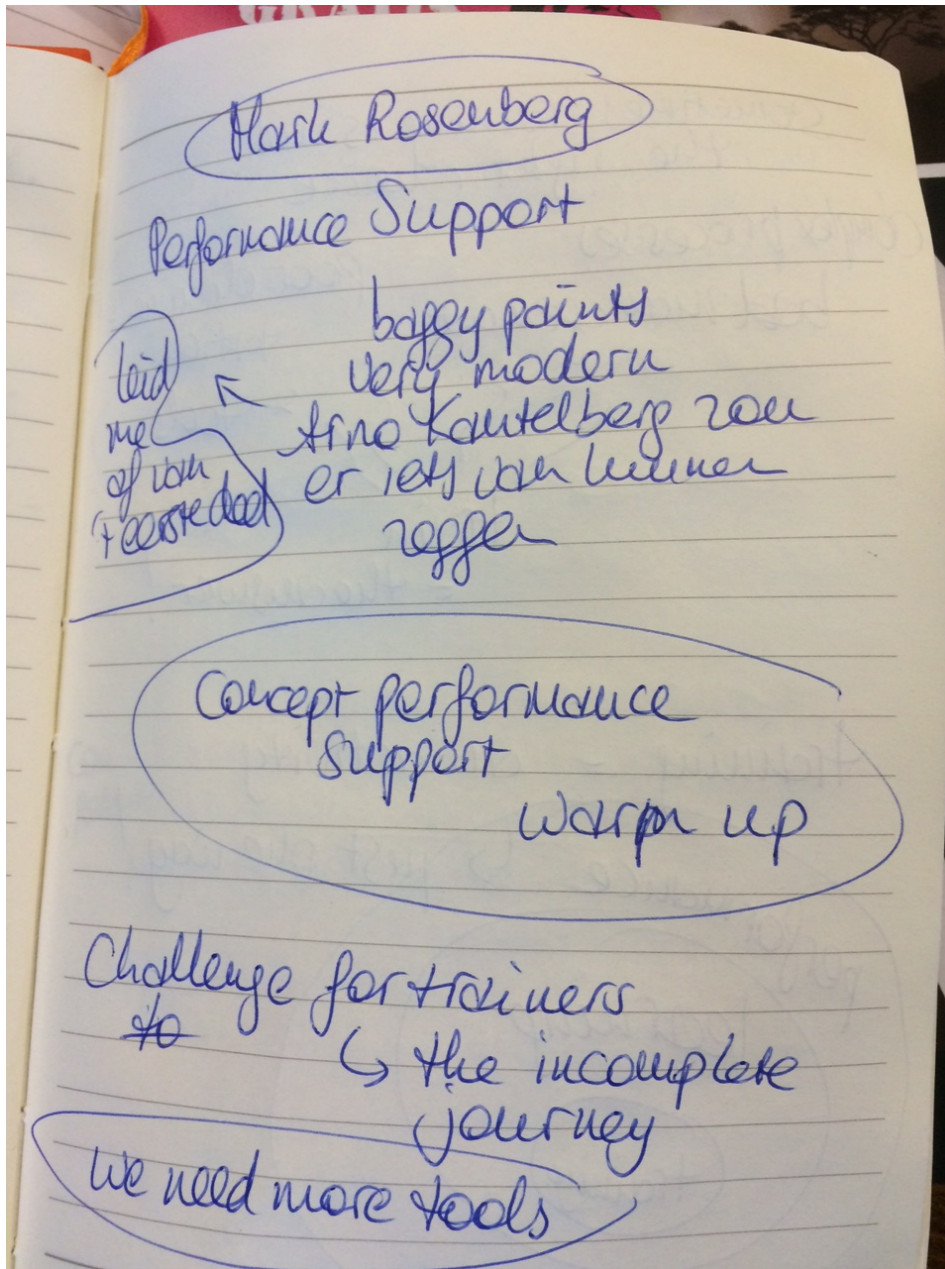 GRATIS
Mark Rosenberg
Performance Support
baggy paints
very modern
Arno Kantelberg zou
er iets van kunnen
zeggen
leid
me
af van
't eerste deel
Concept performance
support
warm up
Challenge for trainers
to
↳ the incomplete
journey
We need more tools